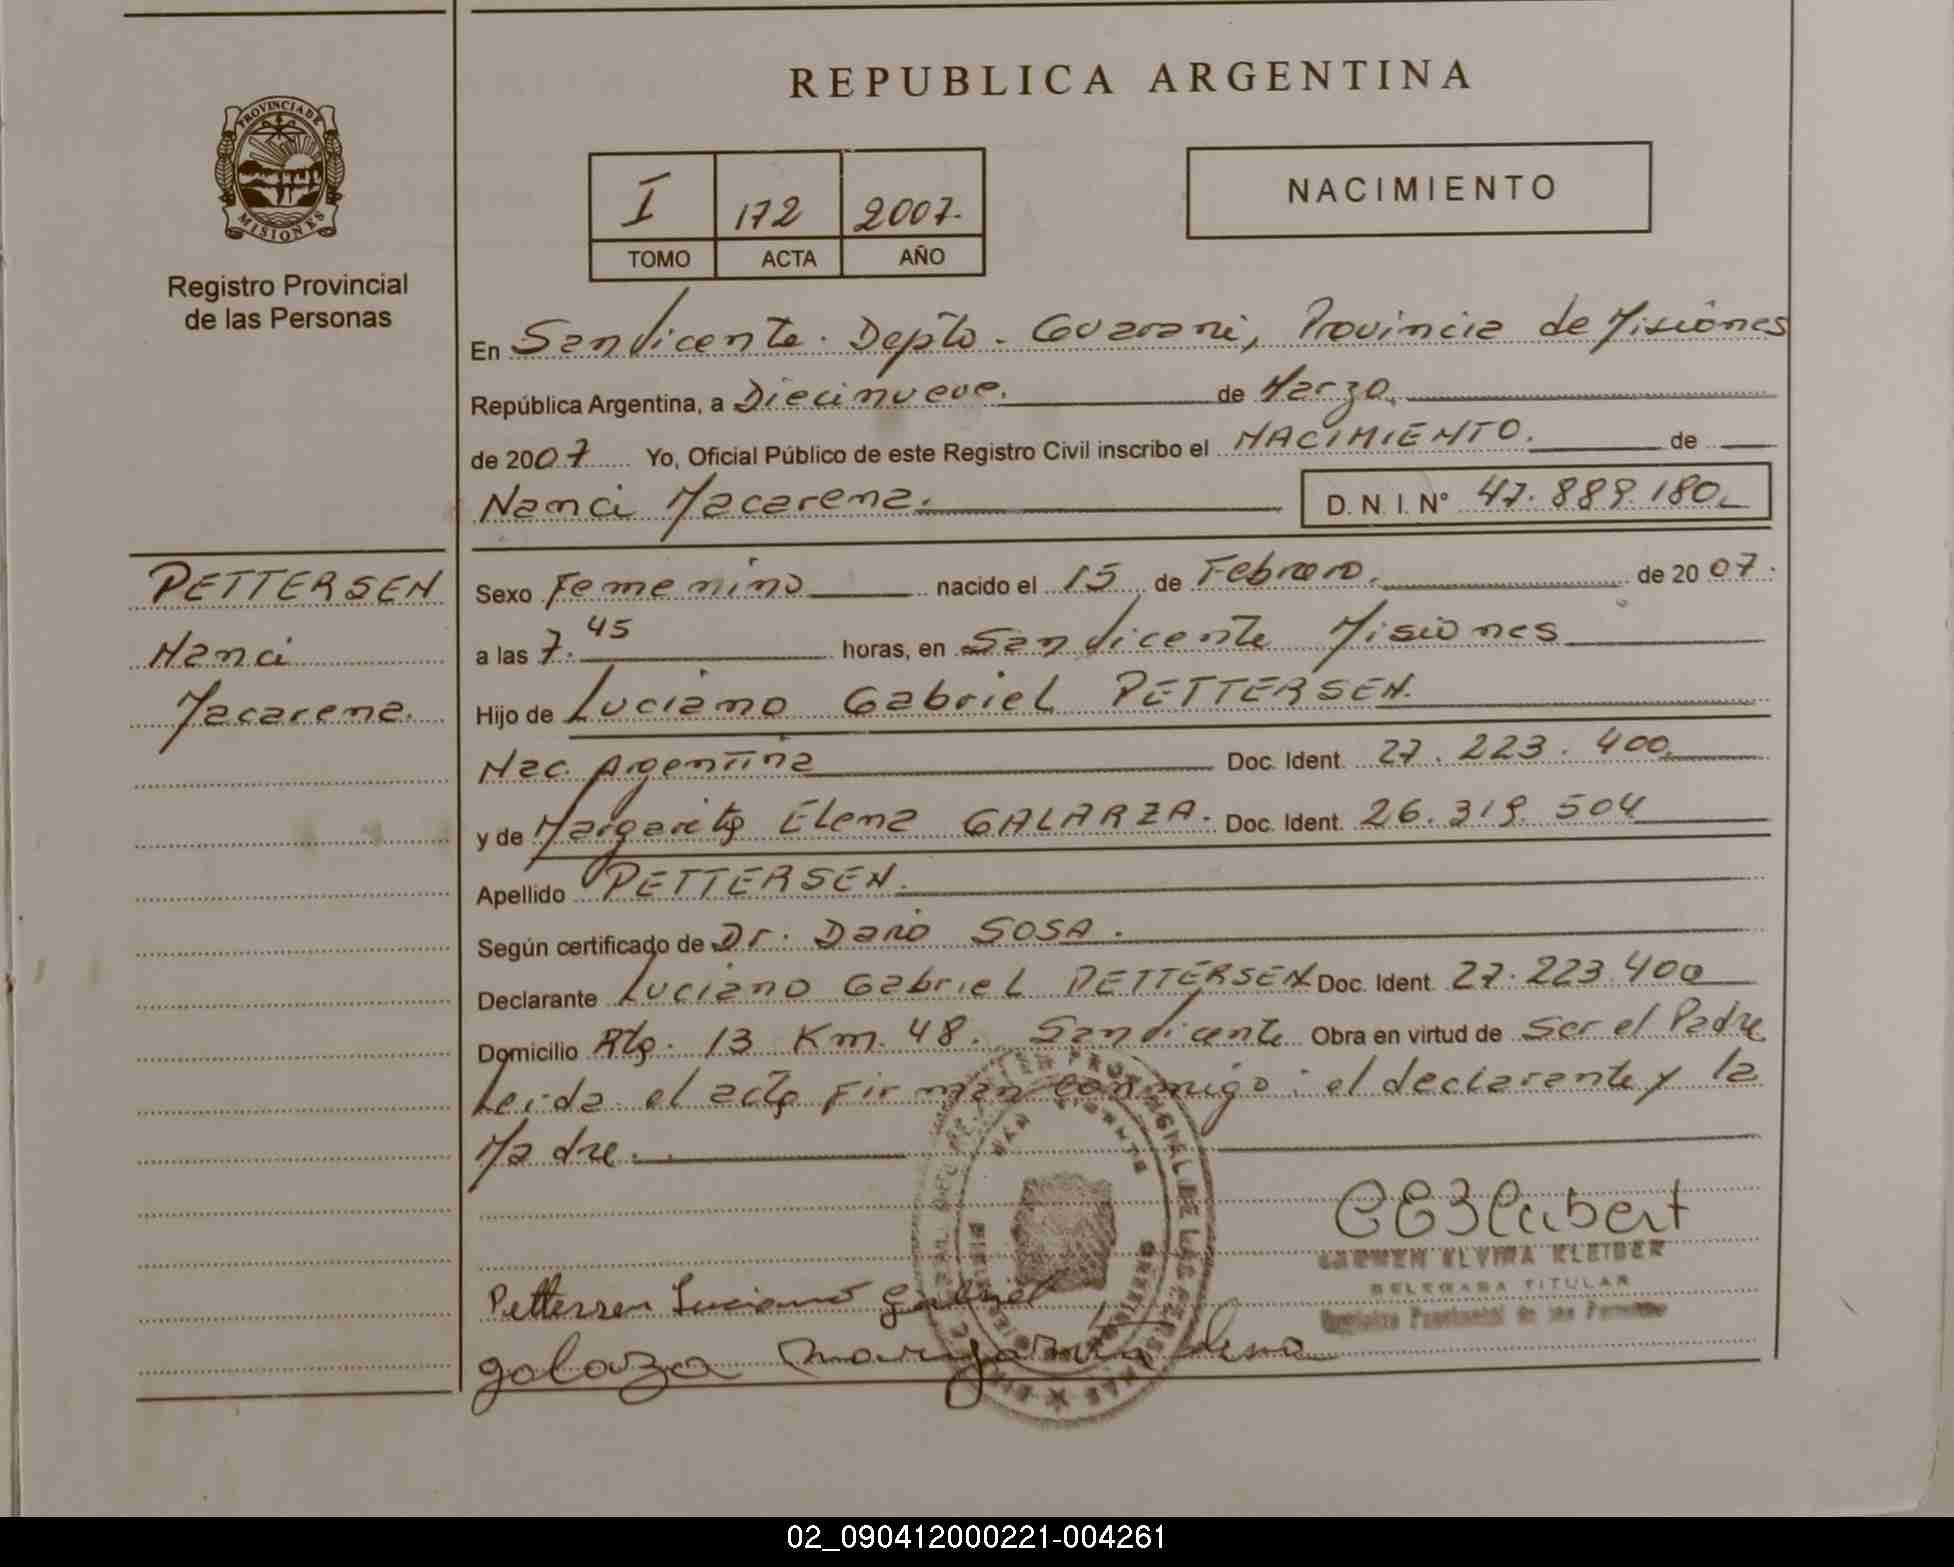 REPUBLICA ARGENTINA
PROVINCIA DE MISIONES
Registro Provincial
de las Personas
I 172 2007.
TOMO ACTA AÑO
NACIMIENTO
En San Vicente. Depto. Guarani, Provincia de Misiones
República Argentina, a Diecinueve. de Marzo.
de 2007 Yo, Oficial Público de este Registro Civil inscribo el NACIMIENTO. de
Nanci Macarena. D. N. I. N° 47.889.180.
PETTERSEN
Nanci
Macarena.
Sexo Femenino nacido el 15 de Febrero. de 2007.
a las 7.45 horas, en San Vicente Misiones
Hijo de Luciano Gabriel PETTERSEN.
Nac. Argentina Doc. Ident. 27.223.400
y de Margarita Elena GALARZA. Doc. Ident. 26.319.504
Apellido PETTERSEN.
Según certificado de Dr. Dario SOSA.
Declarante Luciano Gabriel PETTERSEN Doc. Ident. 27.223.400
Domicilio Rta. 13 Km. 48. San Vicente Obra en virtud de ser el Padre
Leida el acta firman conmigo: el declarante y la
Madre.
CARMEN ELVIRA KLEIBER
DELEGADA TITULAR
Registro Provincial de las Personas
Pettersen Luciano Gabriel
galarza margarita elena
02_090412000221-004261